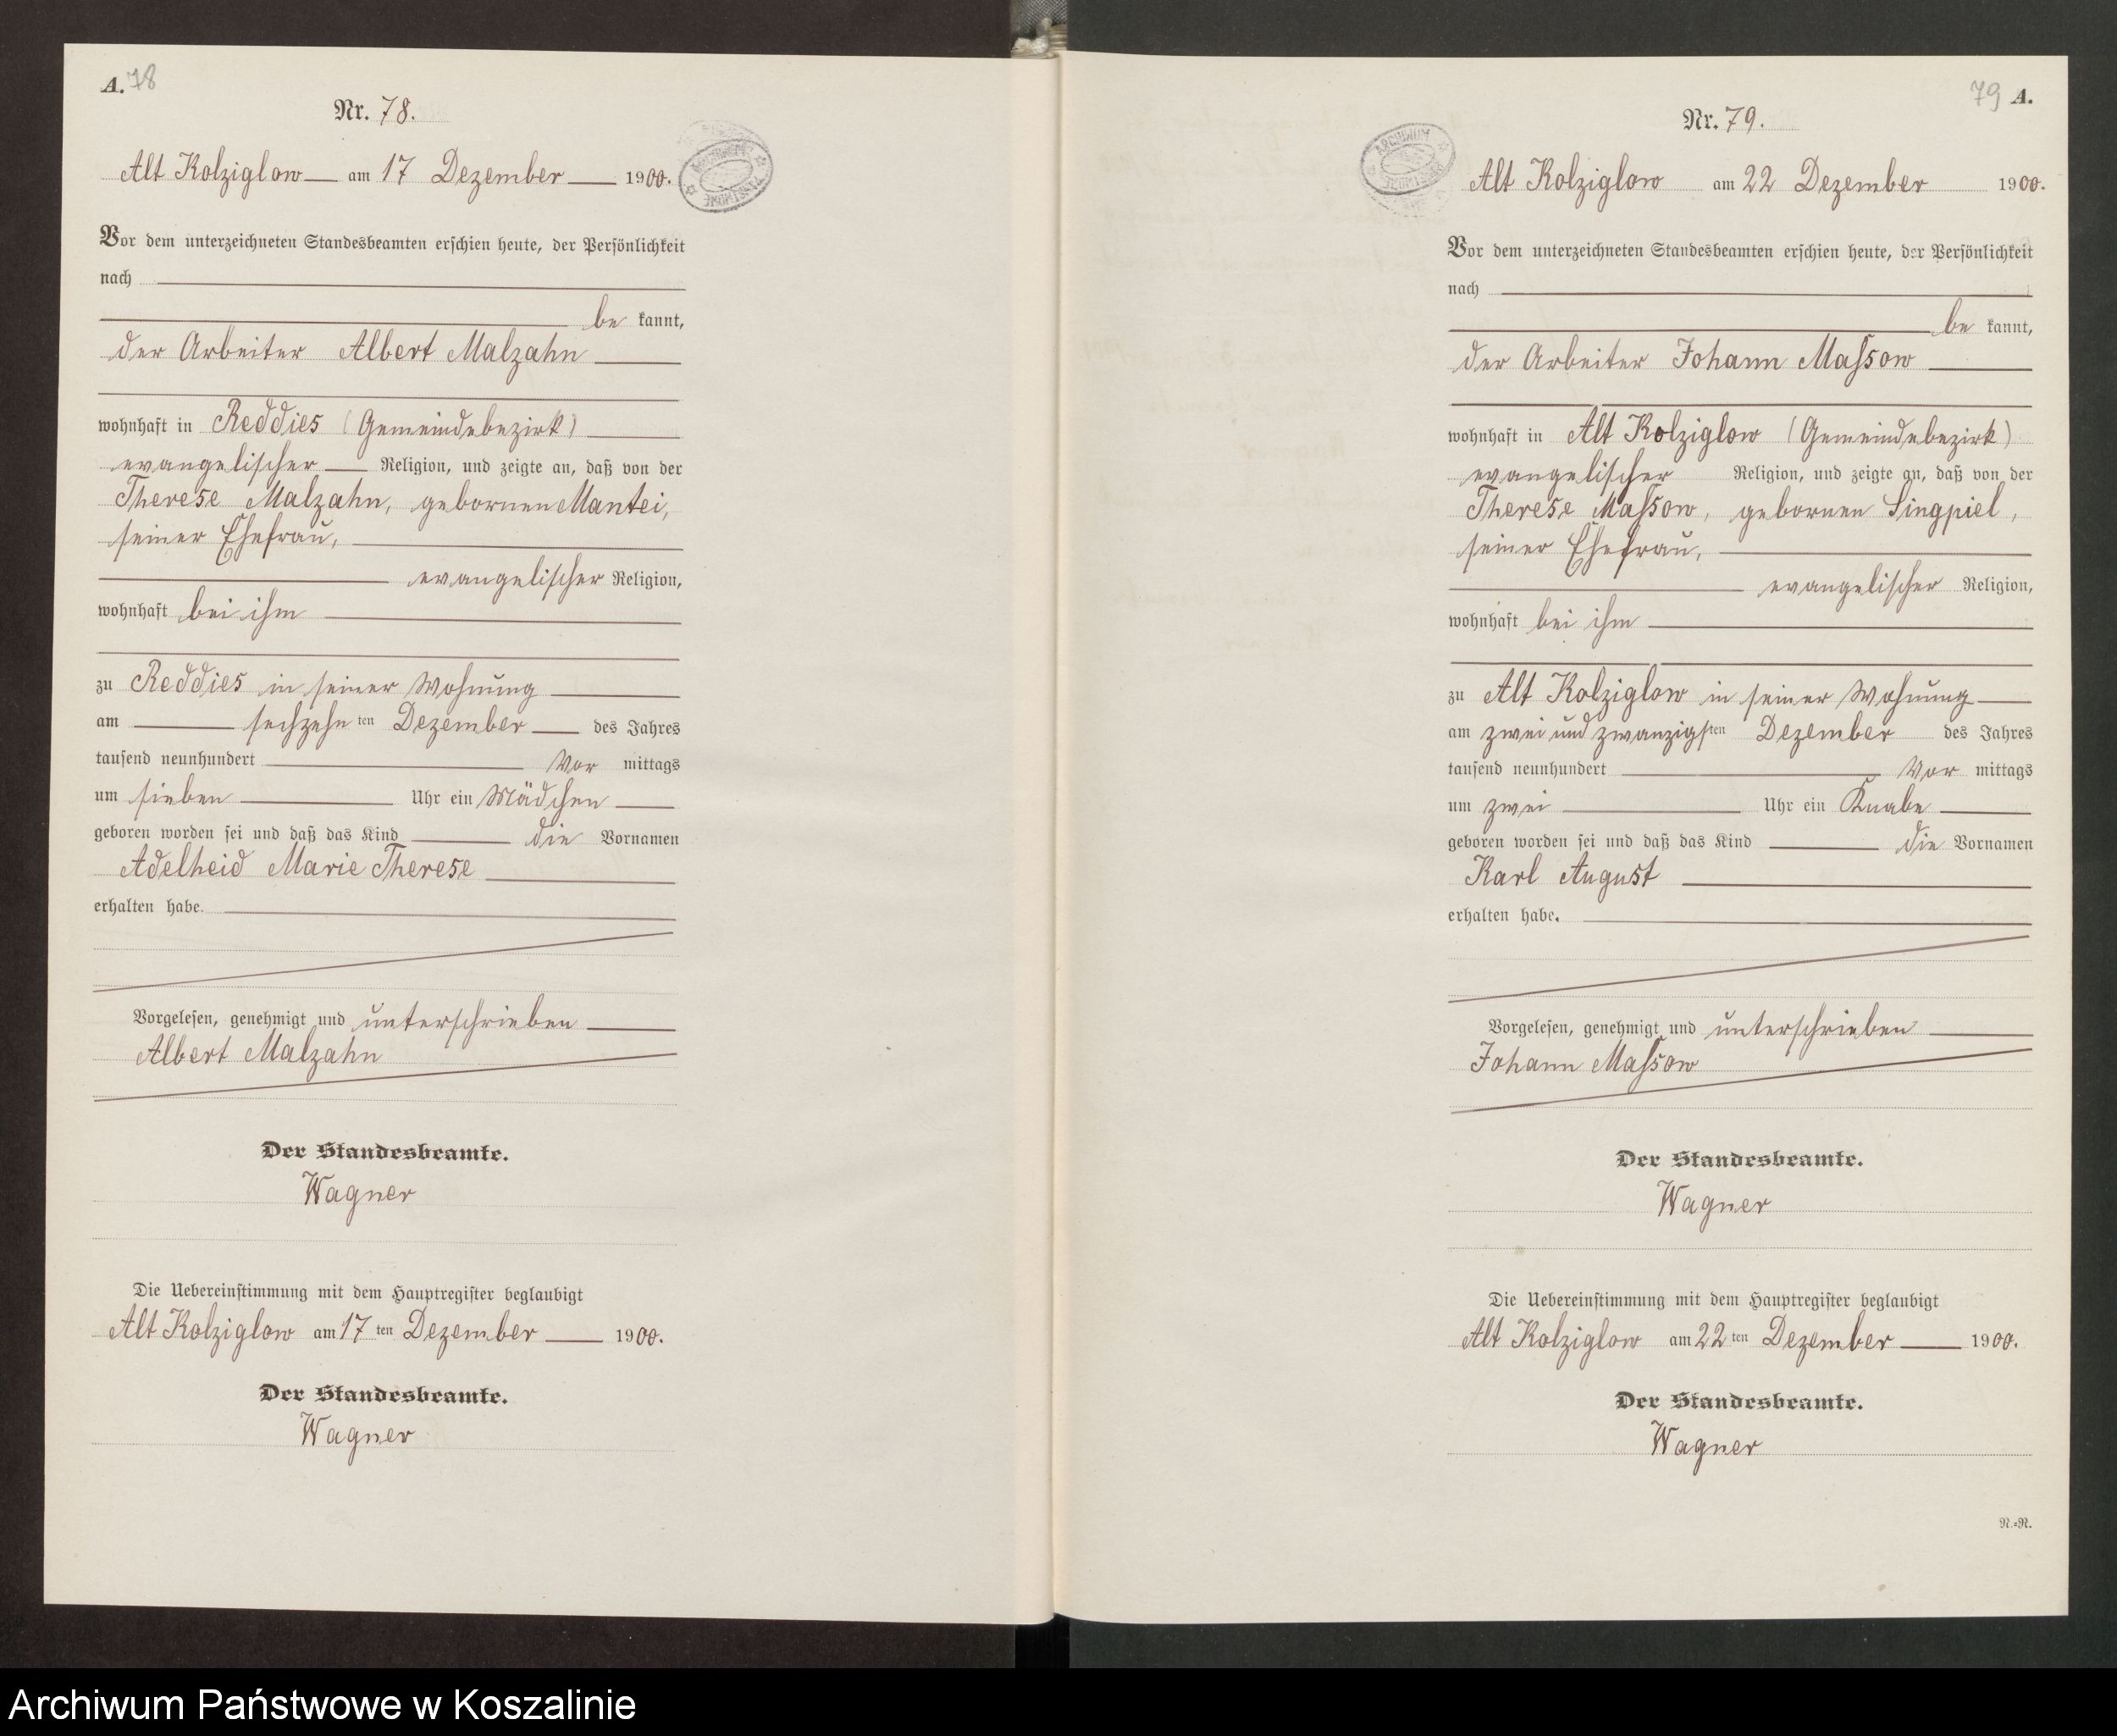 A. 78
Nr. 78.
Alt Kolziglow am 17 Dezember 1900.
Vor dem unterzeichneten Standesbeamten erschien heute, der Persönlichkeit
nach
be kannt,
der Arbeiter Albert Malzahn
wohnhaft in Reddies (Gemeindebezirk)
evangelischer Religion, und zeigte an, daß von der
Therese Malzahn, gebornen Mantei,
seiner Ehefrau,
evangelischer Religion,
wohnhaft bei ihm
zu Reddies in seiner Wohnung
am sechzehn ten Dezember des Jahres
tausend neunhundert Vor mittags
um sieben Uhr ein Mädchen
geboren worden sei und daß das Kind die Vornamen
Adelheid Marie Therese
erhalten habe.
Vorgelesen, genehmigt und unterschrieben
Albert Malzahn
Der Standesbeamte.
Wagner
Die Uebereinstimmung mit dem Hauptregister beglaubigt
Alt Kolziglow am 17 ten Dezember 1900.
Der Standesbeamte.
Wagner
79 A.
Nr. 79.
ARCHIWUM
Alt Kolziglow am 22 Dezember 1900.
Vor dem unterzeichneten Standesbeamten erschien heute, der Persönlichkeit
nach
be kannt,
der Arbeiter Johann Maſsow
wohnhaft in Alt Kolziglow (Gemeindebezirk)
evangelischer Religion, und zeigte an, daß von der
Therese Maſsow, gebornen Singpiel,
seiner Ehefrau,
evangelischer Religion,
wohnhaft bei ihm
zu Alt Kolziglow in seiner Wohnung
am zwei und zwanzigsten Dezember des Jahres
tausend neunhundert Vor mittags
um zwei Uhr ein Knabe
geboren worden sei und daß das Kind die Vornamen
Karl August
erhalten habe.
Vorgelesen, genehmigt und unterschrieben
Johann Maſsow
Der Standesbeamte.
Wagner
Die Uebereinstimmung mit dem Hauptregister beglaubigt
Alt Kolziglow am 22 ten Dezember 1900.
Der Standesbeamte.
Wagner
N.=N.
Archiwum Państwowe w Koszalinie